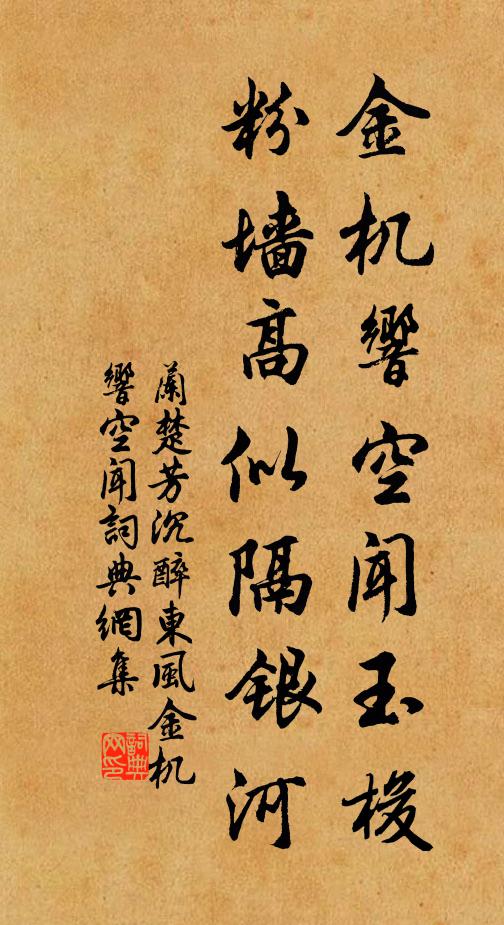 金机響空闻玉梭
粉墙高似隔銀河
蘭楚芳沉醉東風金机
響空闻詞典網集
詞典
网印